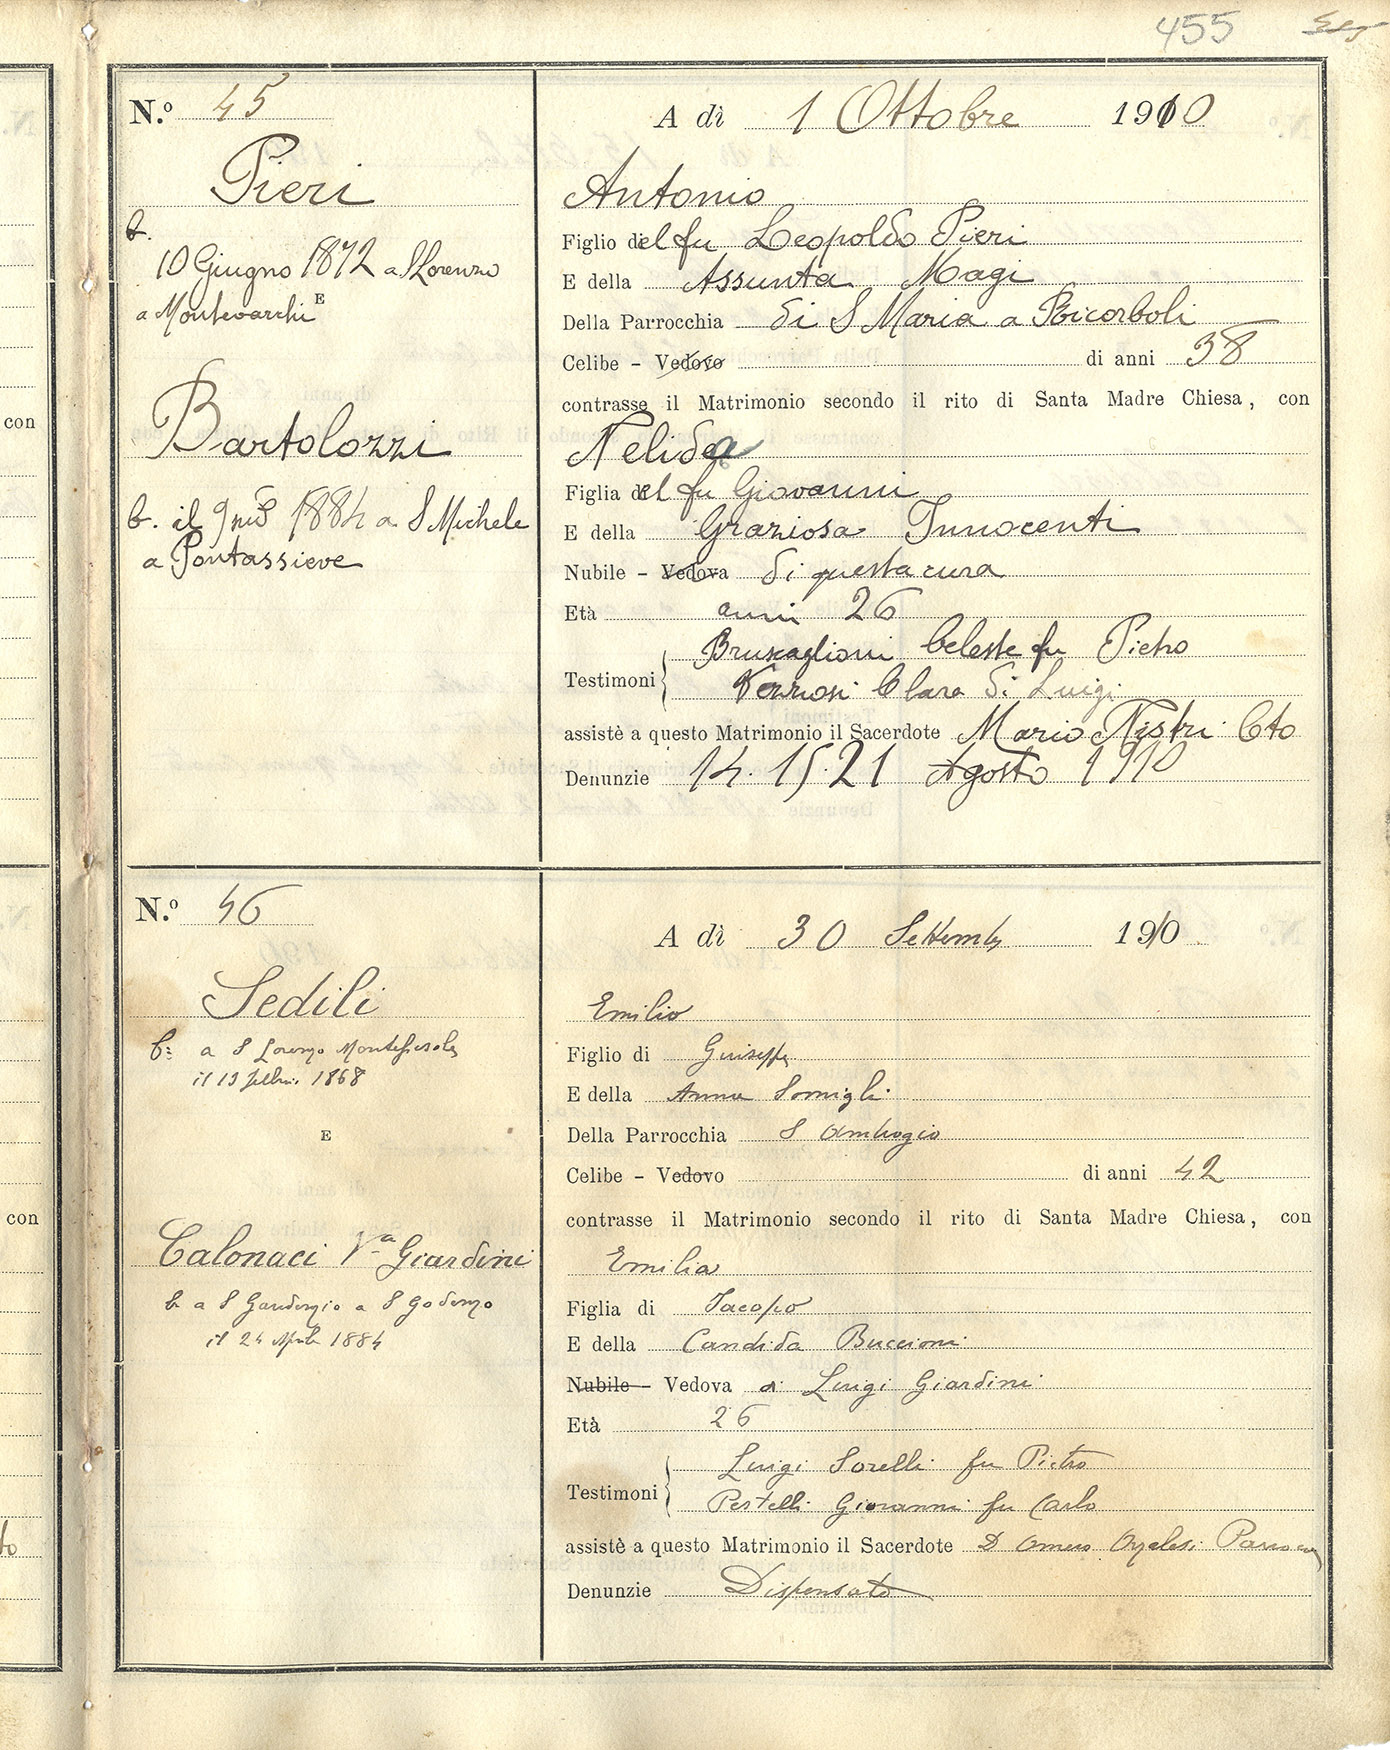 455
N.º 45
Pieri
b.
10 Giugno 1872 a S Lorenzo
a Montevarchi
E
Bartolozzi
b. il 9 1884 a S Michele
a Pontassieve
A dì 1 Ottobre 1910
Antonio
Figlio del fu Leopoldo Pieri
E della Assunta Magi
Della Parrocchia di S Maria a Ricorboli
Celibe - Vedovo di anni 38
contrasse il Matrimonio secondo il rito di Santa Madre Chiesa, con
Nelida
Figlia del fu Giovanni
E della Graziosa Innocenti
Nubile - Vedova di questa cura
Età anni 26
Testimoni
Bruscaglioni Celeste fu Pietro
Clara di Luigi
assistè a questo Matrimonio il Sacerdote Mario Nistri Cto
Denunzie 14. 15. 21 Agosto 1910
N.º 46
Sedili
b: a S Lorenzo Montefiesole
il 19 1868
E
Calonaci Va Giardini
b. a S Gaudenzio a S Godenzo
il 24 Aprile 1884
A dì 30 Settemb 1910
Emilio
Figlio di Giuseppe
E della Anna Somigli
Della Parrocchia S Ambrogio
Celibe - Vedovo di anni 42
contrasse il Matrimonio secondo il rito di Santa Madre Chiesa, con
Emilia
Figlia di Jacopo
E della Candida Buccioni
Nubile - Vedova di Luigi Giardini
Età 26
Testimoni
Luigi Sorelli fu Pietro
Pestelli Giovanni fu Carlo
assistè a questo Matrimonio il Sacerdote D
Denunzie Dispensato
con
con
to